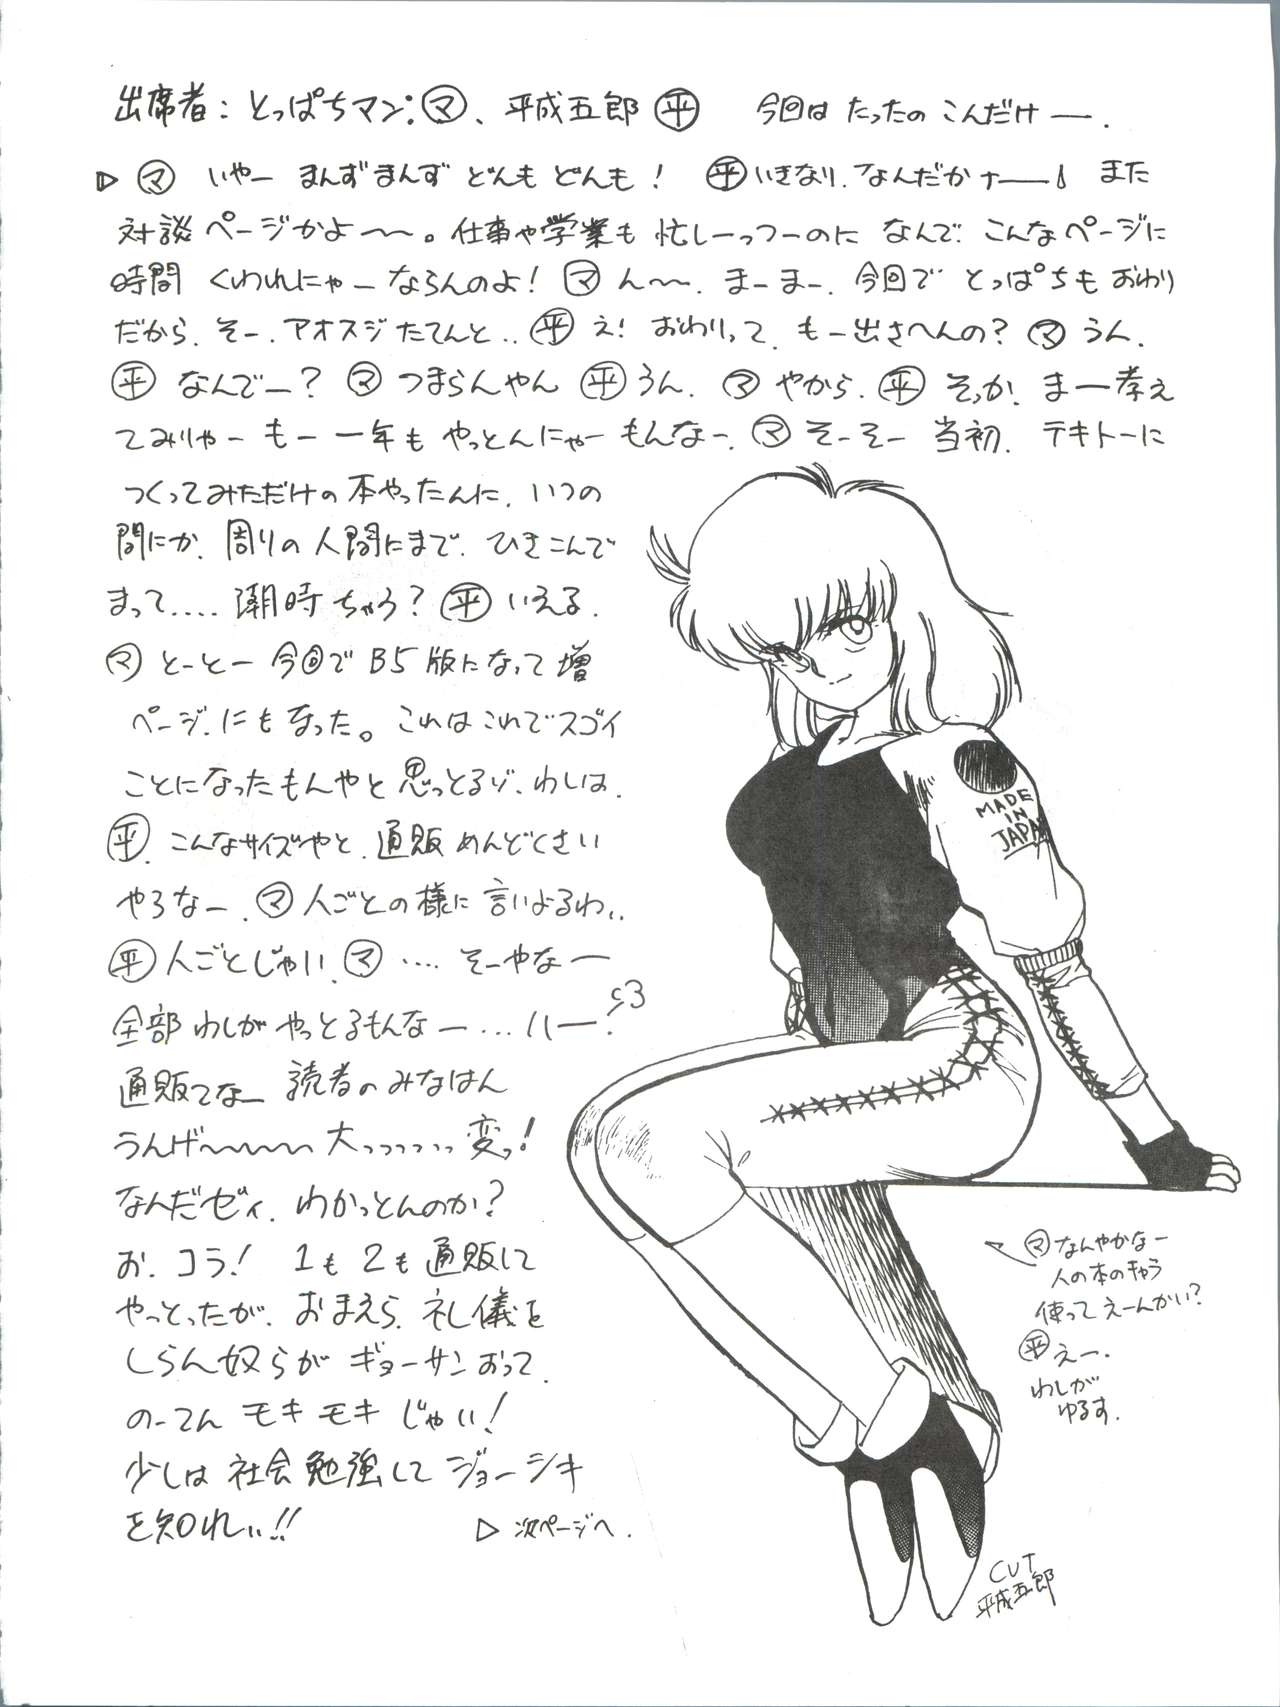 出席者：とっぱちマン：㋮、平成五郎 ㊥ 今回は たったの こんだけー.
▷ ㋮ いやー まんずまんず どんも どんも！ 平 いきなり、なんだかナー！ また
対談ページかよ〜〜。仕事や学業も 忙しーっつーのに なんで、こんなページに
時間 くわれにゃーならんのよ！ ㋮ ん〜〜、まーまー、今回で とっぱちも おわり
だから、そー、アオスジたてんと.. 平 え！ おわりって、もー出さへんの？ ㋮ うん、
平 なんでー？ ㋮ つまらんやん 平 うん、 ㋮ やから、 平 そっか、まー考え
てみりゃー もー 一年も やっとんにゃー もんなー、㋮ そーそー 当初、テキトーに
つくってみただけの本やったんに、いつの
間にか、周りの人間にまで、ひきこんで
まって.... 潮時ちゃう？ 平 いえる、
㋮ とーとー 今回で B5版になって増
ページ、にもなった。これはこれでスゴイ
ことになったもんやと思っとるゾ、わしは、
平、こんなサイズやと、通販めんどくさい
やろなー、㋮ 人ごとの様に言いよるわい、
平 人ごとじゃい、㋮ .... そーやなー
全部 わしが やっとるもんなー... ハー、
通販てなー 読者のみなはん
うんげ〜〜〜〜 大っっっっっ変っ！
なんだゼィ、わかっとんのか？
お、コラ！ 1も2も通販して
やっとったが、おまえら、礼儀を
しらん奴らが ギョーサンおって、
のーてん モキモキ じゃい！
少しは 社会勉強して ジョーシキ
を知れぃ!!
▷ 次ページへ.
MADE
IN
JAPAN
㋮ なんやかなー
人の本のキャラ
使って えーんかい？
平 えー、
わしが
ゆるす.
CUT
平成五郎